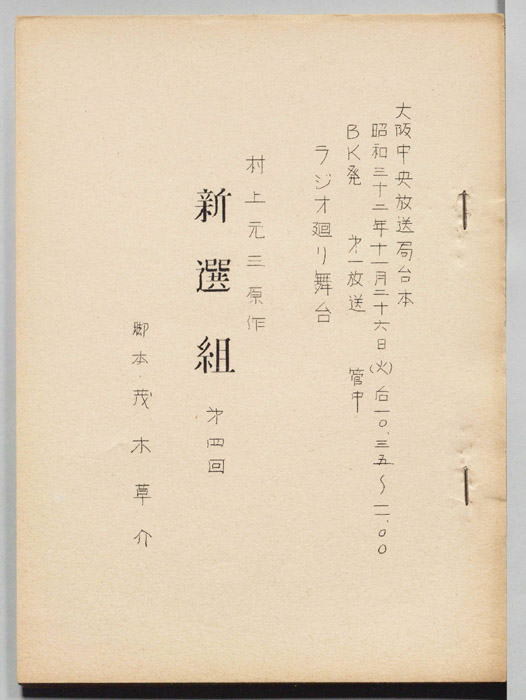 大阪中央放送局台本
昭和三十二年十一月二十六日(火)后一〇.三五〜一一.〇〇
BK発 才一放送 管中
ラジオ廻り舞台
村上元三原作
新選組 才四回
脚本・茂木草介